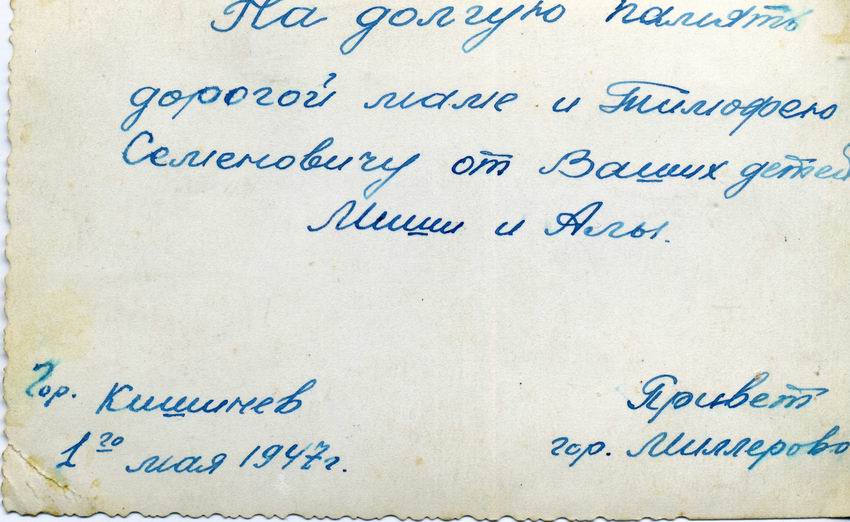 На долгую память
дорогой маме и Тимофею
Семеновичу от Ваших детей
Миши и Алы.
Гор. Кишинев
1го мая 1947г.
Привет
гор. Миллерово